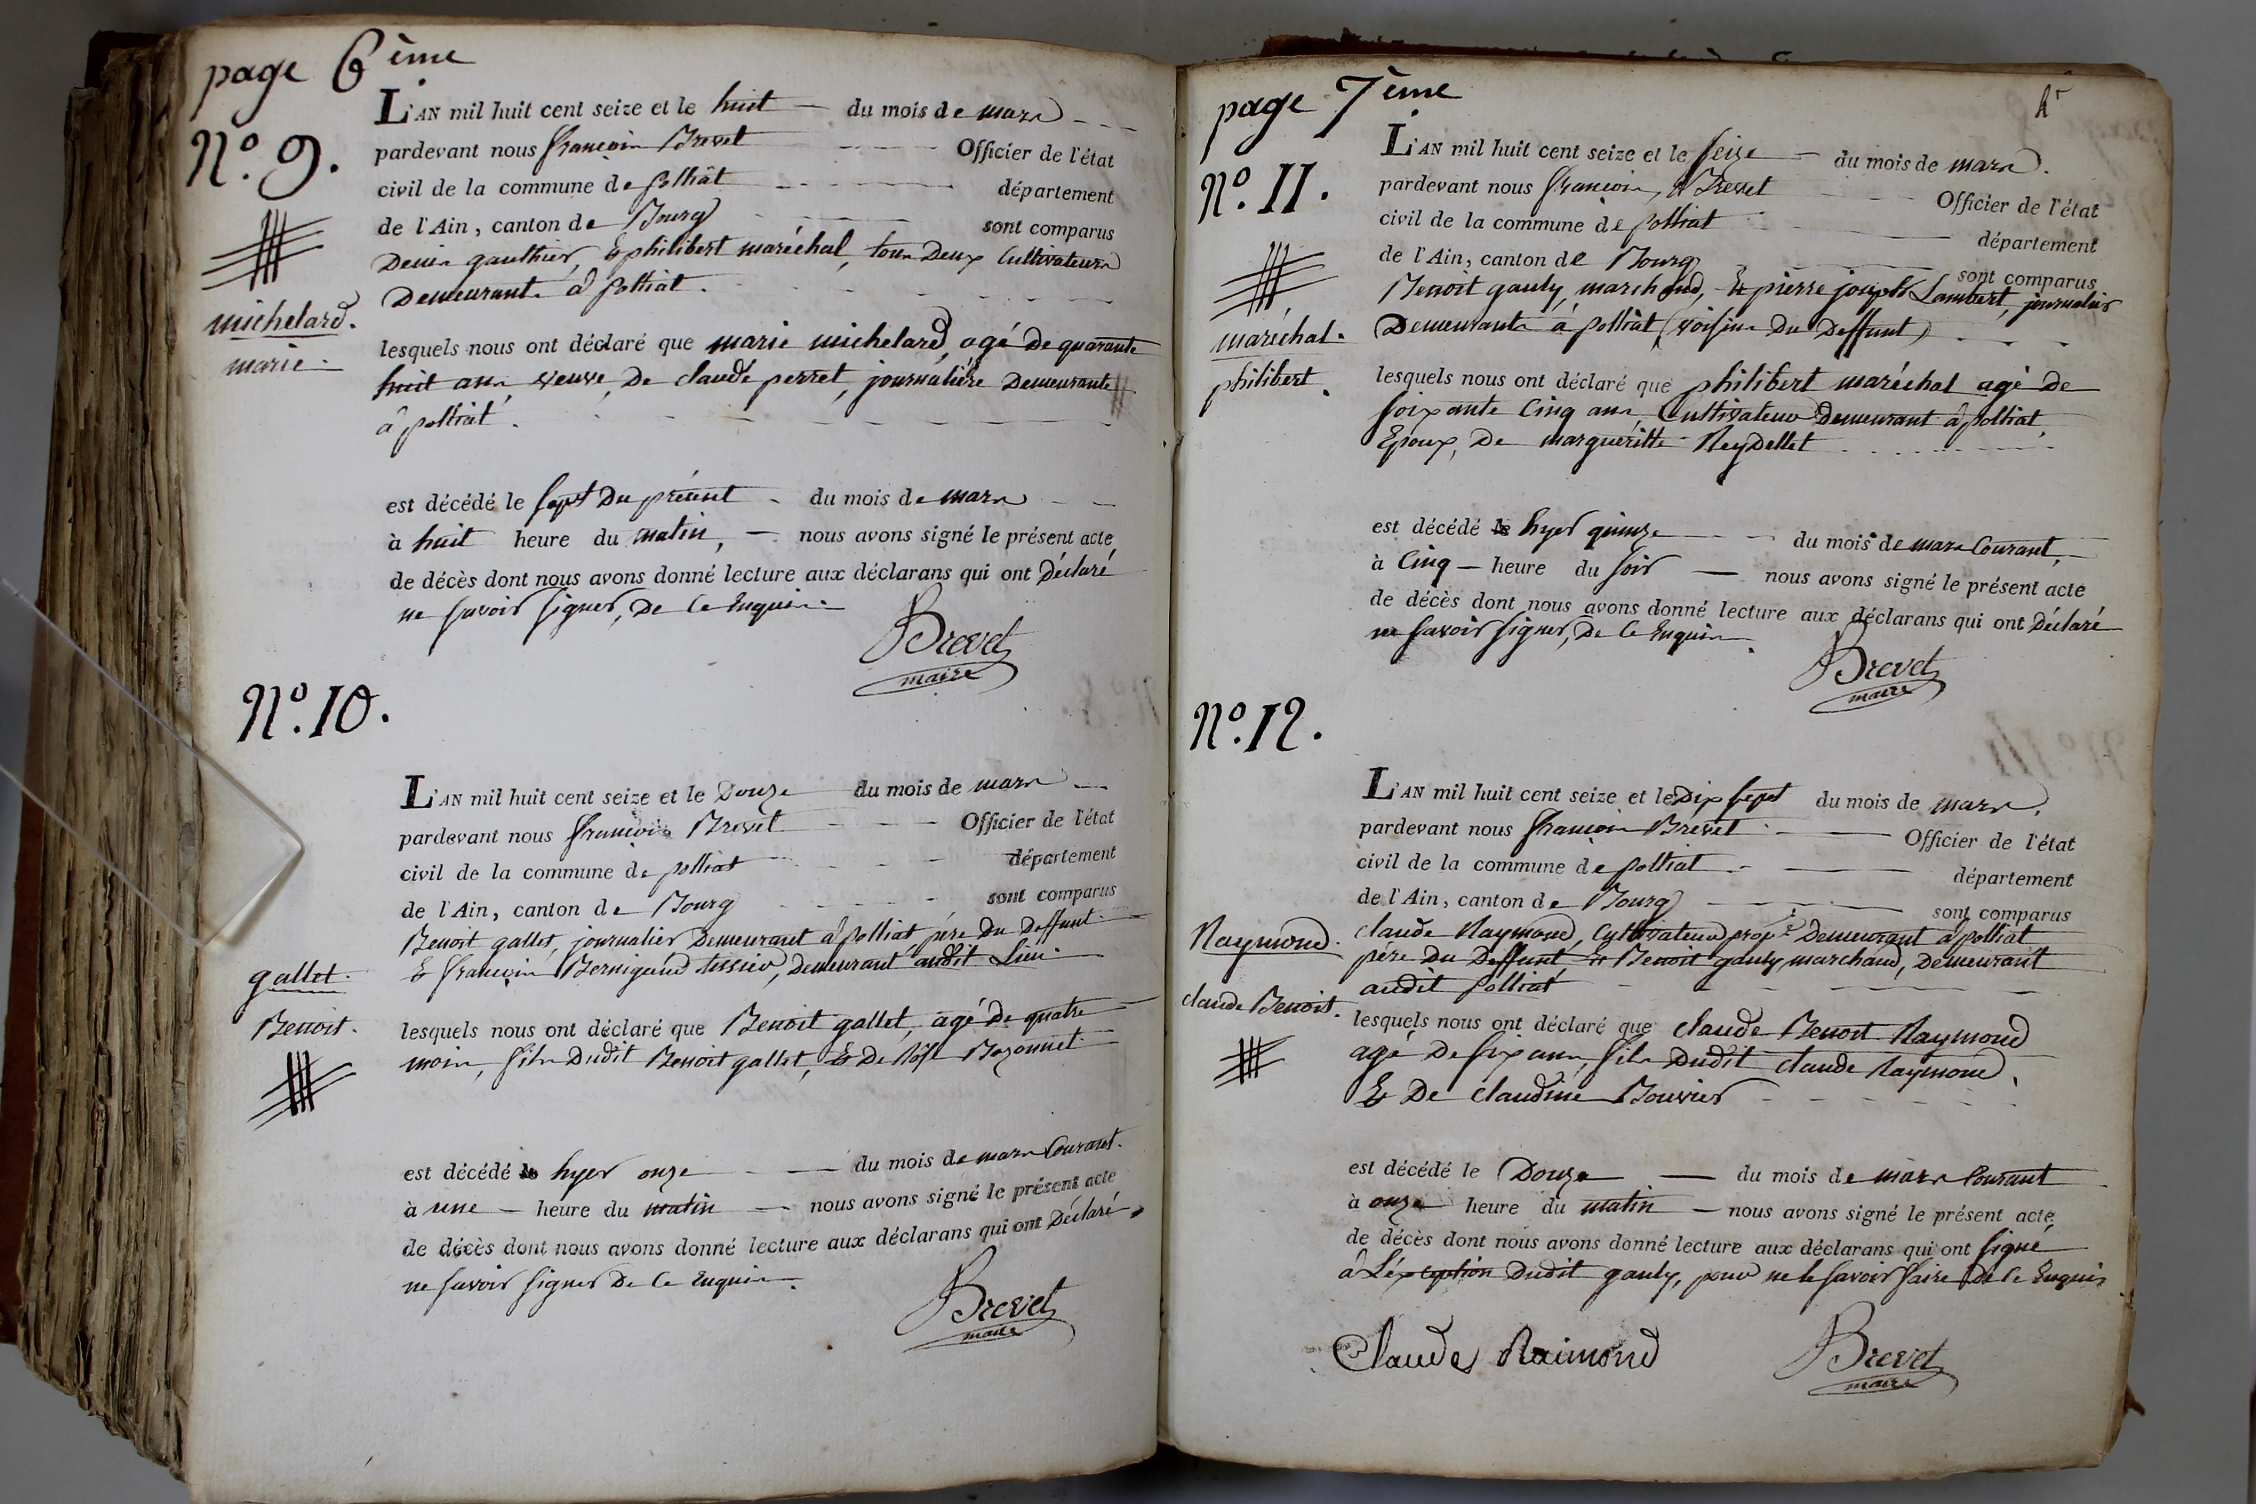 page 6ème
N°. 9.
L'AN mil huit cent seize et le huit — du mois de mars
pardevant nous françois Brevet Officier de l'état
civil de la commune de polliat département
de l'Ain, canton de Bourg sont comparus
Denis gauthier, & philibert maréchal, tous Deux Cultivateurs
Demeurants à polliat.
michelard.
marie.
lesquels nous ont déclaré que marie michelard, agé De quarante
huit ans, veuve, De claude perret, journalière Demeurante
à polliat.
est décédé le sept Du présent du mois de mars
à huit heure du matin, — nous avons signé le présent acte
de décès dont nous avons donné lecture aux déclarans qui ont Déclaré
ne savoir signer, De Ce Enquis.
Brevet
maire
N°. 10.
L'AN mil huit cent seize et le Douze du mois de mars
pardevant nous françois Brevet Officier de l'état
civil de la commune de polliat département
de l'Ain, canton de Bourg sont comparus
Benoit gallet, journalier Demeurant à polliat père Du Deffunt
& françois Bernigaud tissier, Demeurant audit Lieu
gallet.
Benoit.
lesquels nous ont déclaré que Benoit gallet, agé de quatre
mois, fils Dudit Benoit gallet, & De Bozonnet
est décédé le hyer onze — du mois de mars Courant.
à une — heure du matin — nous avons signé le présent acte
de décès dont nous avons donné lecture aux déclarans qui ont Déclaré
ne savoir signer De Ce Enquis.
Brevet
maire
page 7ème
N°. 11.
L'AN mil huit cent seize et le seize — du mois de mars.
pardevant nous françois, Brevet Officier de l'état
civil de la commune de polliat département
de l'Ain, canton de Bourg sont comparus
Benoit gauly, marchand, & pierre joseph Lambert, journalier
Demeurants à polliat (voisins Du Deffunt)
maréchal.
philibert.
lesquels nous ont déclaré que philibert maréchal agé De
soixante Cinq ans, Cultivateur Demeurant à polliat,
Epoux, De margueritte Reydellet
est décédé le hyer quinze du mois de mars Courant,
à Cinq — heure du soir — nous avons signé le présent acte
de décès dont nous avons donné lecture aux déclarans qui ont Déclaré
ne savoir signer, De Ce Enquis.
Brevet
maire
N°. 12.
L'AN mil huit cent seize et le Dix sept du mois de mars.
pardevant nous françois Brevet Officier de l'état
civil de la commune de polliat département
de l'Ain, canton de Bourg sont comparus
Raymond.
claude Benoit.
claude Raymond, Cultivateur propre Demeurant à polliat
père Du Deffunt & Benoit gauly marchand, Demeurant
audit polliat
lesquels nous ont déclaré que claude Benoit Raymond
agé De six ans, fils Dudit claude Raymond,
& De claudine Bouvier
est décédé le Douze — du mois de mars Courant
à onze heure du matin — nous avons signé le présent acte
de décès dont nous avons donné lecture aux déclarans qui ont signé
à L'éxception Dudit gauly, pour ne le savoir faire De Ce Enquis
Claude Raimond
Brevet
maire